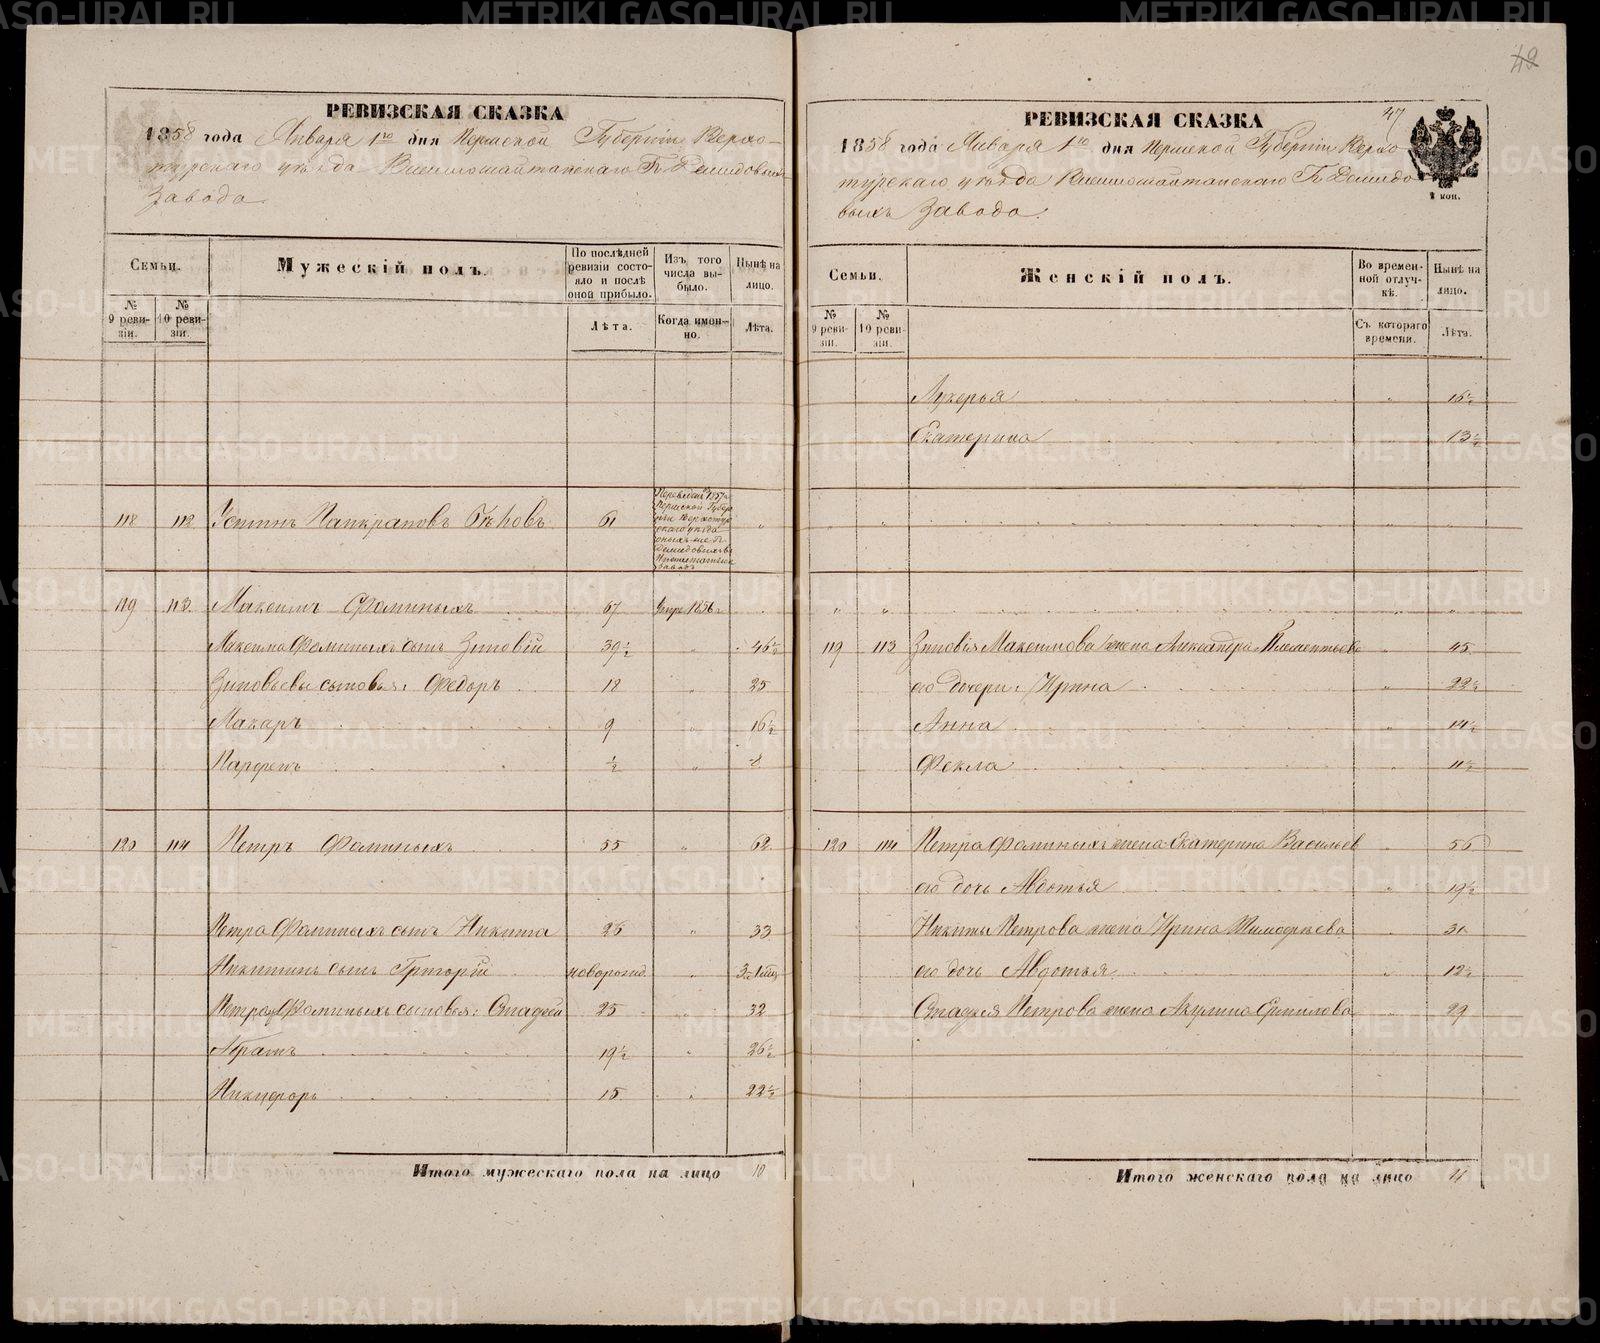 РЕВИЗСКАЯ СКАЗКА
1858 года Января 1го дня Пермской Губернiи Верхо-
турскаго уѣзда Висимошайтанскаго Гг. Демидовыхъ
Завода.
Семьи.
Мужескiй полъ.
По послѣдней ревизiи состояло и послѣ оной прибыло.
Изъ того числа выбыло.
Нынѣ на лицо.
№ 9 ревизiи.
№ 10 ревизiи.
Лѣта.
Когда именно.
Лѣта.
118 112 Устинъ Панкратовъ 61 "
Переведенъ 1857 г.
Пермской Губер
нiи Верхотур
скаго уѣзда
Демидовыхъ
заводъ
119 113 Максимъ Фоминыхъ 67 Умре 1856 г
Максима Фоминыхъ сынъ Зиновiй 39½ " 46½
Зиновьевы сыновья: Федоръ 18 " 25
Макаръ 9 " 16½
Парфенъ ½ " 8
120 114 Петръ Фоминыхъ 55 " 62
Петра Фоминыхъ сынъ Никита 26 " 33
Никитинъ сынъ Григорiй новорожд " 
Петра Фоминыхъ сыновья: 25 " 32
Абрамъ 19½ " 26½
Никифоръ 15 " 22½
Итого мужескаго пола на лицо 10
42
47
РЕВИЗСКАЯ СКАЗКА
1858 года Января 1го дня Пермской Губернiи Верхо
турскаго уѣзда Висимошайтанскаго Гг. Демидо
выхъ Завода.
2 коп.
Семьи.
Женскiй полъ.
Во временной отлучкѣ.
Нынѣ на лицо.
№ 9 ревизiи.
№ 10 ревизiи.
Съ котораго времени.
Лѣта.
Лукерья " 16½
Екатерина " 13½
119 113 Зиновiя Максимова жена Александра Климентьева " 45
его дочери: Ирина " 22½
Анна " 14½
Фекла " 11½
120 114 Петра Фоминыхъ жена Екатерина Васильев " 56
его дочь Авдотья " 19½
Никиты Петрова жена Ирина Тимофѣева " 31
его дочь Авдотья " 12½
Петрова жена Акулина Ермилова " 29
Итого женскаго пола на лицо 11
METRIKI.GASO-URAL.RU